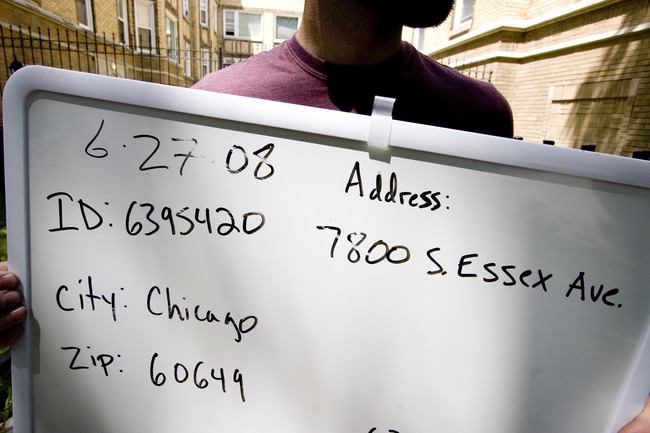 6.27.08
ID: 6395420
City: Chicago
Zip: 60649
Address:
7800 S. Essex Ave.